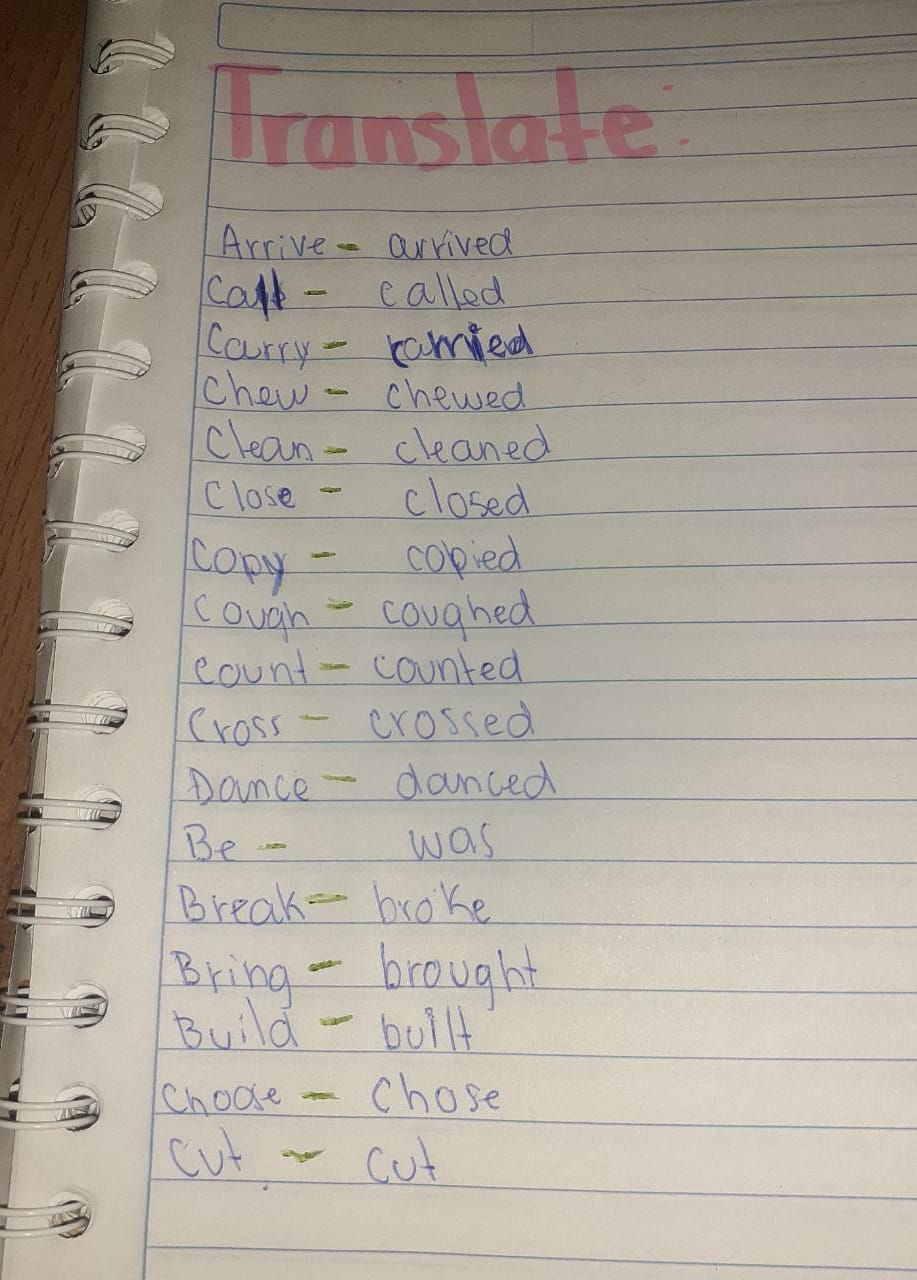 Translate:
Arrive - arrived
Call - called
Carry - carried
Chew - chewed
Clean - cleaned
Close - closed
Copy - copied
Cough - coughed
count - counted
Cross - crossed
Dance - danced
Be - was
Break - broke
Bring - brought
Build - built
Choose - Chose
Cut - cut